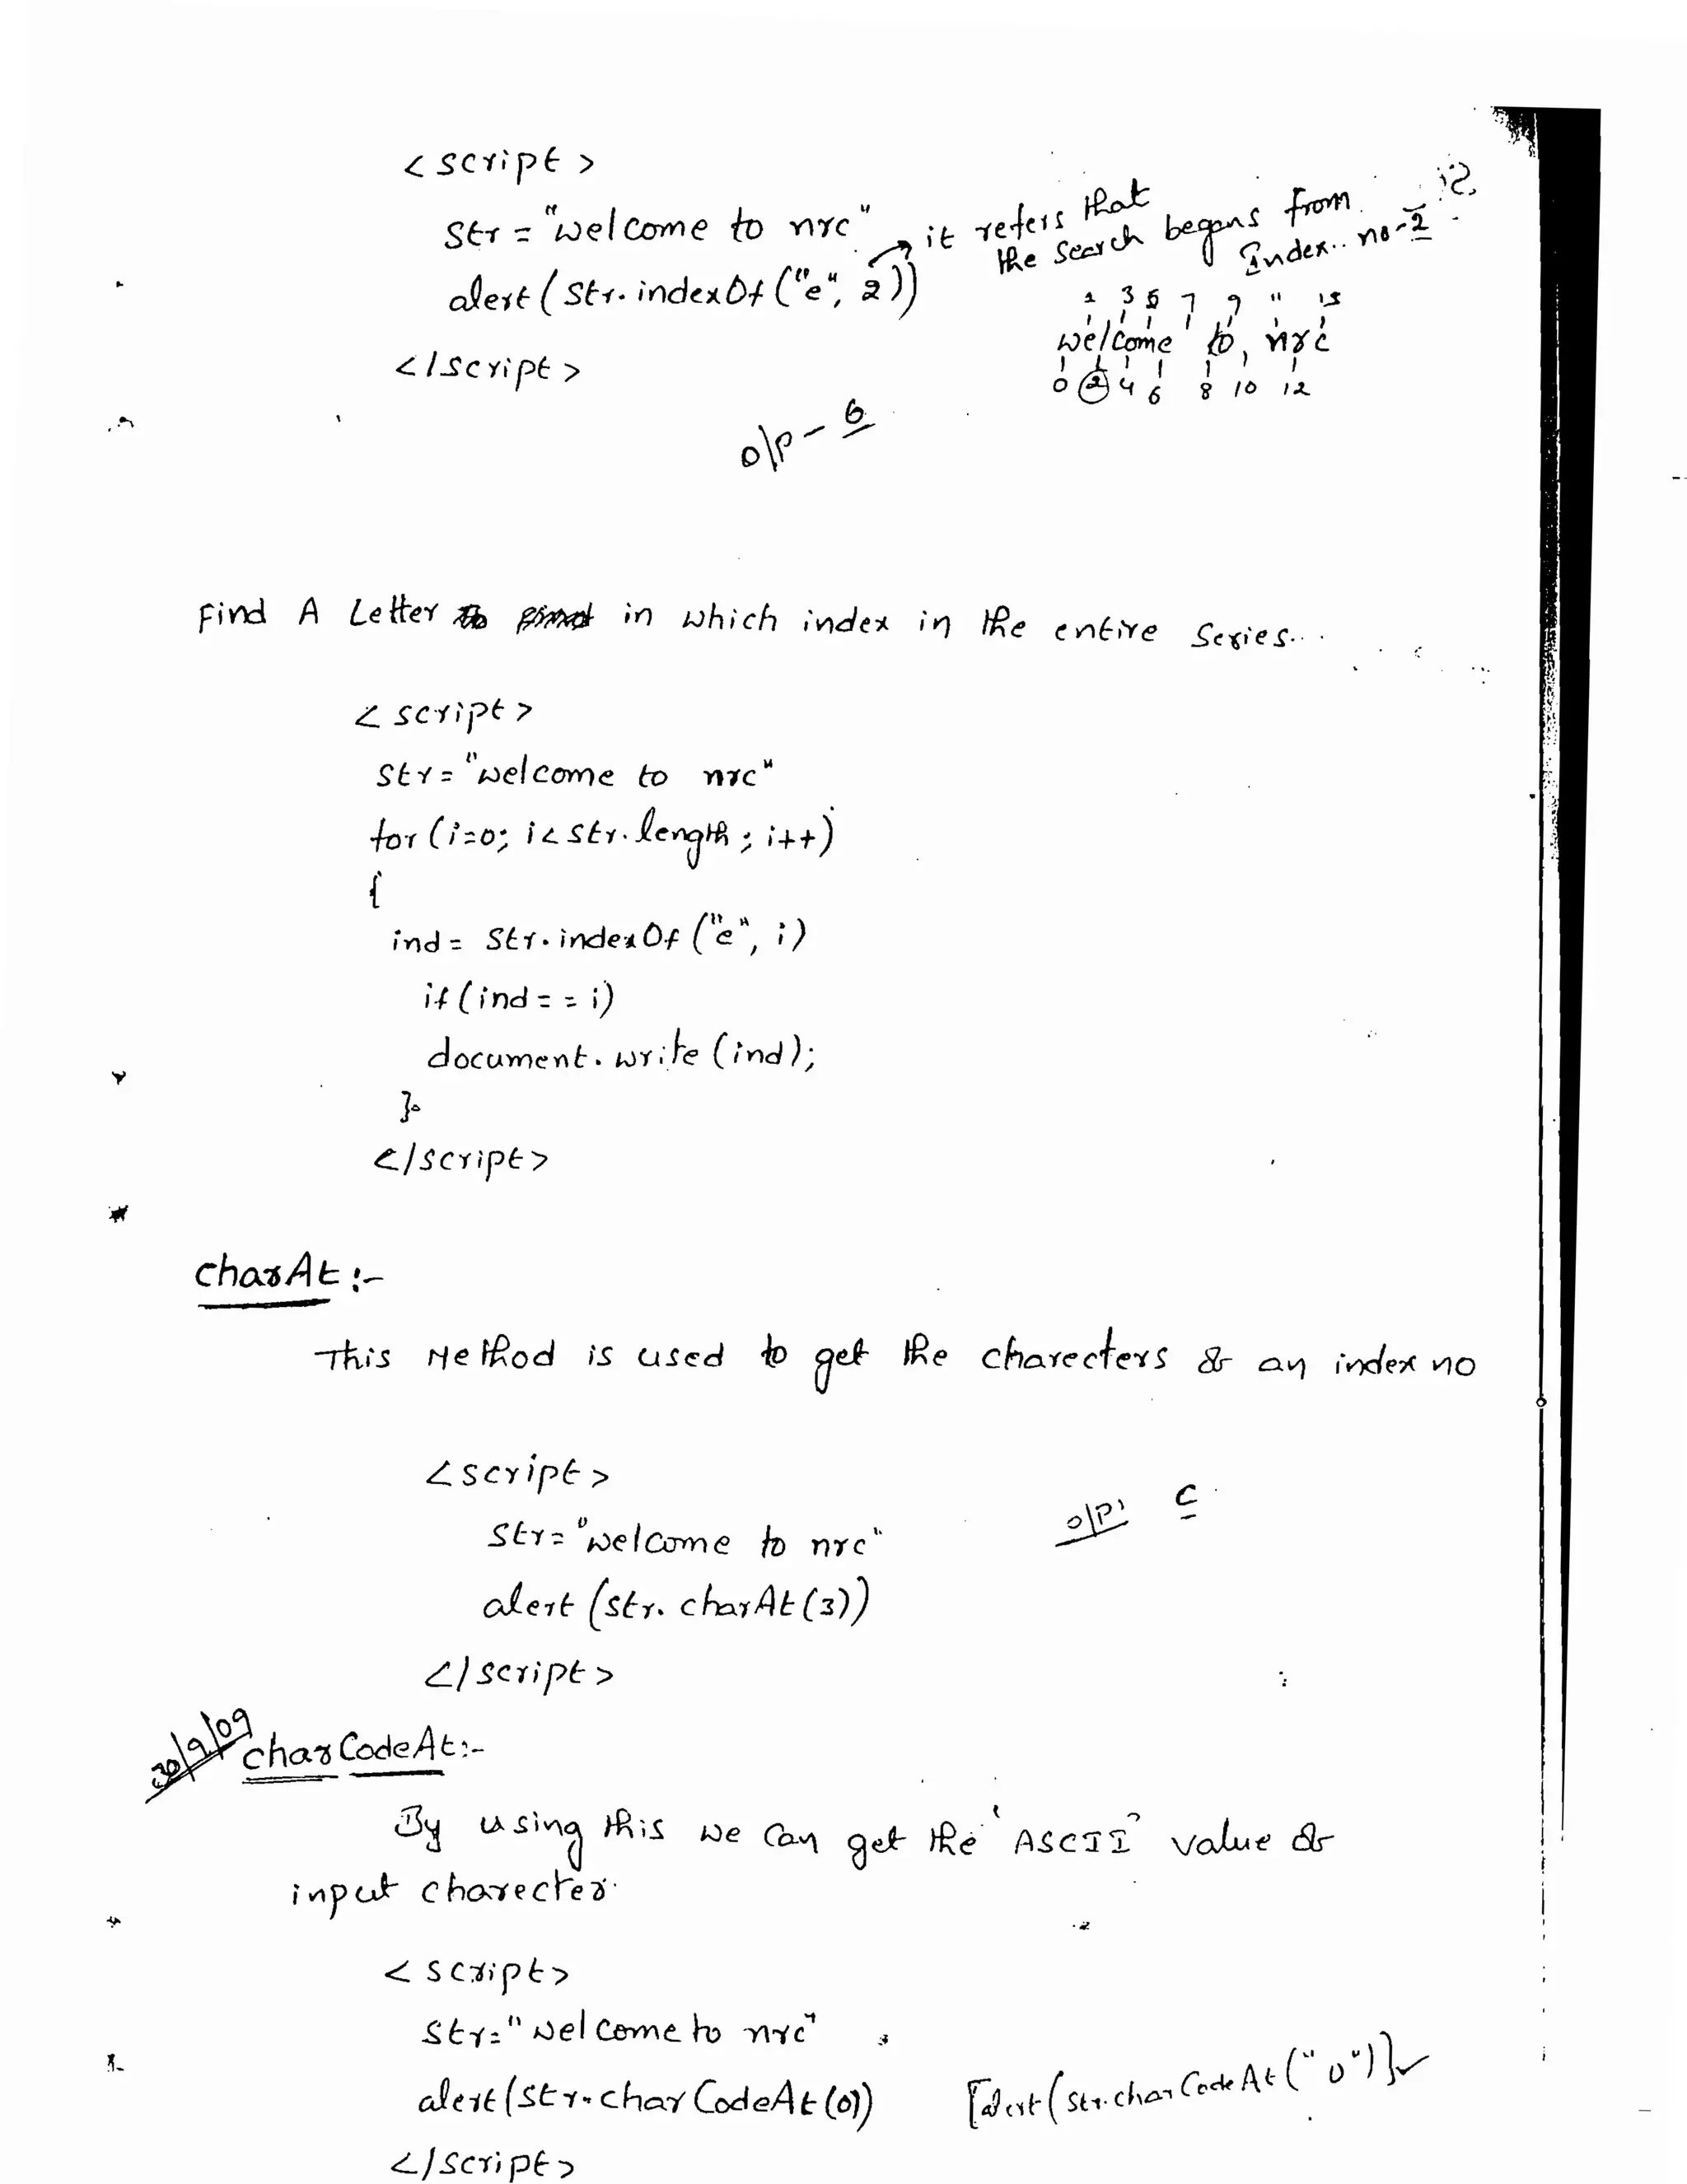 < script >
str = "welcome to nrc"
it refers that
the search begans from
Index.. no-2
alert ( str. indexOf ("e", 2 ))
1 3 5 7 9 11 13
welcome to, nrc
0 2 4 6 8 10 12
</script >
o/p - 6
Find A Letter in which index in the entire Series...
< script >
str = "welcome to nrc"
for (i=0; i< str. length ; i++)
{
ind = str. indexOf ("e", i)
if (ind = = i)
document. write (ind);
}
</script>
charAt :-
This Method is used to get the charecters & an index no
<script>
str= "welcome to nrc"
o/p: c
alert (str. charAt (3))
</script>
30/9/09
charCodeAt:-
By using this we can get the 'ASCII' value &
input charecter.
< script>
str=" welcome to nrc"
alert (str. charCodeAt (0))
[alert ( str. charCodeAt ("0")]✓
</script>